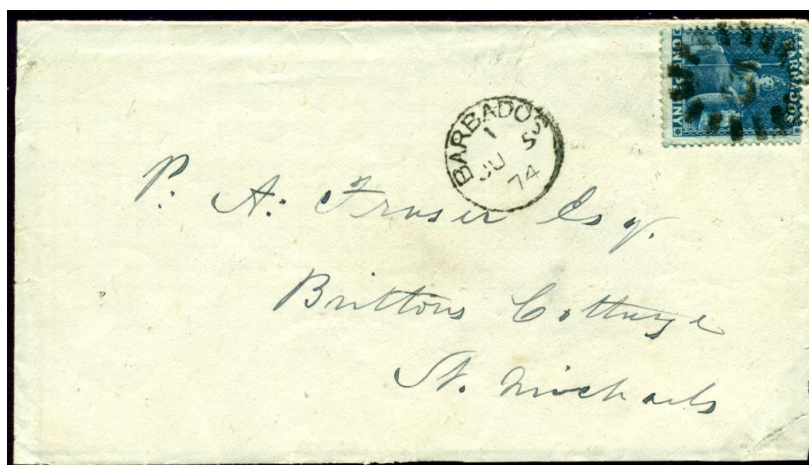 BARBADOS
BARBADOS
1
JU 5
74
P. A. Fraser Esqr.
Brittons Cottage
St. Michaels